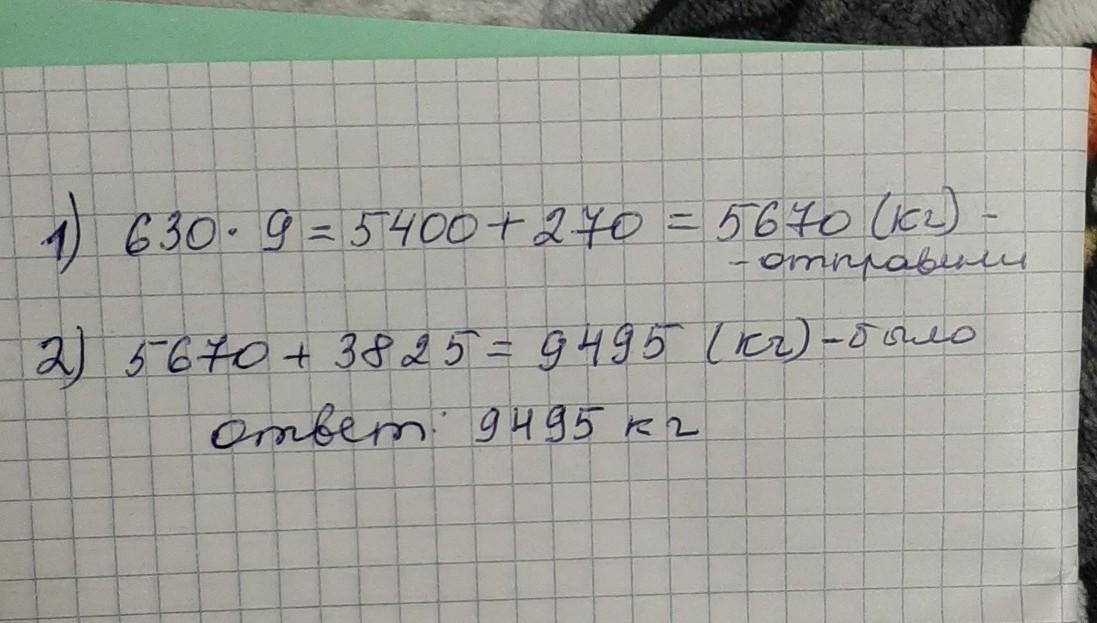 1) 630 · 9 = 5400 + 270 = 5670 (кг) -
- отправили
2) 5670 + 3825 = 9495 (кг) - было
ответ: 9495 кг